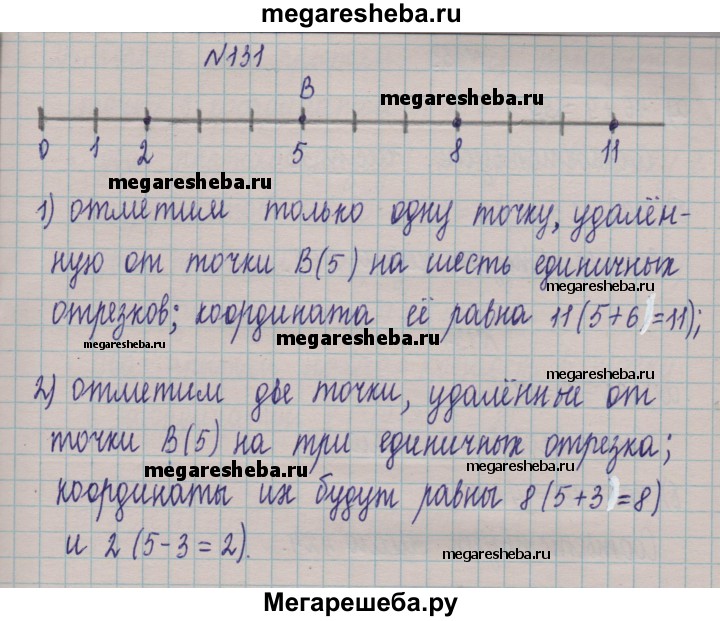 megaresheba.ru
N131
B
megaresheba.ru
0 1 2 5 8 11
megaresheba.ru
1) отметим только одну точку, удалён-
ную от точки B(5) на шесть единичных
megaresheba.ru
отрезков; координата её равна 11 (5+6)=11);
megaresheba.ru
megaresheba.ru
megaresheba.ru
2) отметим две точки, удалённые от
точки B(5) на три единичных отрезка;
megaresheba.ru
megaresheba.ru
координаты их будут равны 8 (5+3)=8)
и 2 (5-3=2).
megaresheba.ru
Мегарешеба.ру